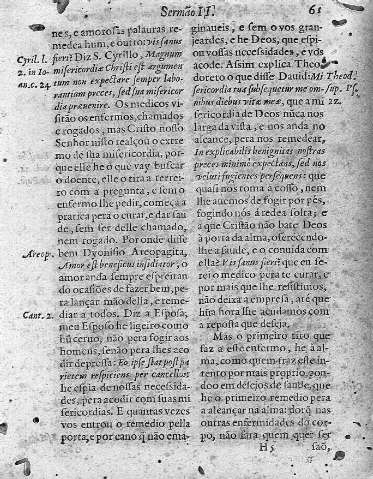 Sermão II. 61
nes, e amorosas palauras re-
medea hum, e outro: vis sanus
Cyril. l. fieri? Diz S. Cyrillo, Magnum
2. in Io- misericordiæ Christi est argumen
an. c. 24 tum non expectare semper labo-
rantium preces, sed sua misericor
dia præuenire. Os medicos vi-
sitão os enfermos, chamados
e rogados, mas Christo nosso
Senhor nisto realçou o extre
mo de sua misericordia, por-
que elle he o que vay buscar
o doente, elle o tira a terrei-
ro com a pregunta, e sem o
enfermo lhe pedir, começa a
pratica pera o curar, e dar sau
de, sem ser delle chamado,
nem rogado. Por onde disse
Areop. bem Dyonisio Areopagita,
Amor est beneficii insidiator, o
amor anda sempre espreitan
do occasiões de fazer bem, pe
ra lançar mão della, e reme-
Cant. 2. diar a todos. Diz a Esposa,
meu Esposo he ligeiro como
hũ ceruo, não pera fogir aos
homens, senão pera lhes aco
dir depressa: En ipse stat post pa
rietem respiciens per cancellos
he espia de nossas necessida-
des, pera acodir com suas mi
sericordias. E quantas vezes
vos entrou o remedio pella
porta, e por cano q̃ não ema-
ginaueis, e sem o vos gran-
jeardes, e he Deos, que espi-
on vossas necessidades, e vos
acode. Assim explica Theo
doreto o que disse Dauid: Mi Theod.
sericordia tua subsequetur me om- sup. Ps.
nibus diebus vitæ meæ, que a mi 22.
sericordia de Deos nũca nos
larga da vista, e nos anda no
alcance, pera nos remedear,
In explicabilis benignitas nostras
preces minimè expectans, sed nos
velut fugientes persequens: que
quasi nos toma a cosso, nem
lhe auemos de fogir por pès,
fogindo nós á redea solta; e
a que Christão não bate Deos
á porta da alma, offerecendo
lhe a saude, e o conuida com
ella? Vis sanus fieri? que en fe-
rei o medico pera te curar, e
por mais que lhe resistimos,
não deixa a empresa, atè que
hũa hora lhe acudamos com
a reposta que deseja.
Mas o primeiro tiro que
faz a este enfermo, he á al-
ma, como quem traz esse in-
tento por mais proprio, pon-
doo em desejos de saude, que
he o primeiro remedio pera
a alcançar na alma: dorq̃ nas
outras enfermidades do cor-
po, não sara quem quer ser
H 5 saõ,